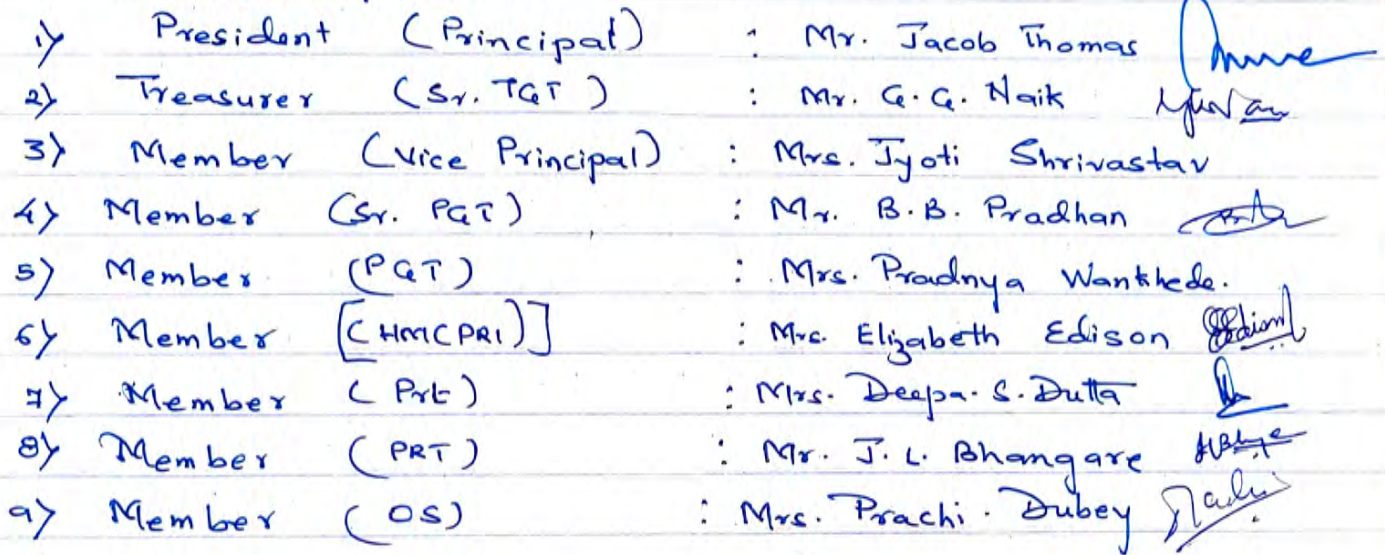 1) President (Principal) : Mr. Jacob Thomas
2) Treasurer (Sr. TGT) : Mr. G. G. Naik
3) Member (Vice Principal) : Mrs. Jyoti Shrivastav
4) Member (Sr. PGT) : Mr. B.B. Pradhan
5) Member (PGT) : Mrs. Pradnya Wankhede.
6) Member [(HM(PRI)] : Mrs. Elizabeth Edison
7) Member (Prt) : Mrs. Deepa. S. Dutta
8) Member (PRT) : Mr. J. L. Bhangare
9) Member (OS) : Mrs. Prachi. Dubey